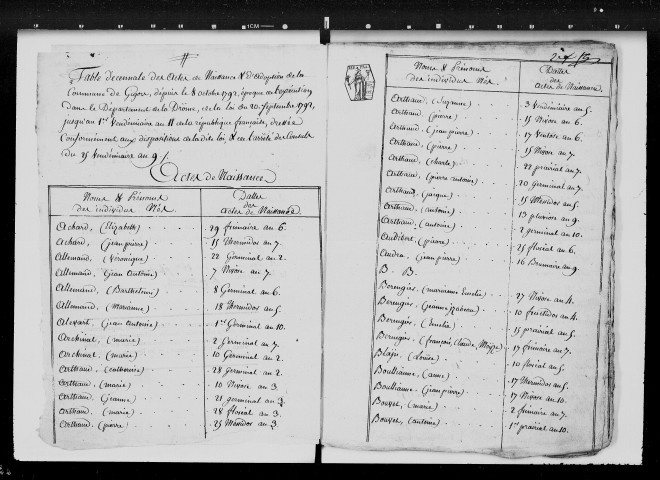 Table décennale des actes de Naissance & d'adoption de la
Commune de Gigors, depuis le 8 octobre 1792, époque de l'exécution
Dans le Département de la Drome, de la loi du 20. Septembre 1792,
jusqu'au 1er Vendémiaire an 11 de la république française, dressée
Conformément aux dispositions de ladite loi, & de l'arrêté des Consuls
du 25 Vendémiaire an 9.
Actes de Naissance
Noms & Prénoms des individus Nés. Dattes des actes de Naissance
Achard, (Elizabeth) 29 frimaire an 6.
Achard, (jean pierre) 15 thermidor an 7.
Allemand, (Véronique) 22 Germinal an 2.
Allemand, (jean antoine) 7 Nivose an 7.
Allemand, (Barthelemi) 8 Germinal an 6.
Allemand, (Marianne) 18 thermidor an 5.
(jean antoine) 1er Germinal an 10.
Archinal, (marie) 2 Germinal an 7.
Archinal, (marie) 10 Germinal an 2.
Arthaud, (catherine) 28 Germinal an 2.
Arthaud, (marie) 10 Nivose an 3.
Arthaud, (jeanne) 21 germinal an 3.
Arthaud, (marie) 28 floréal an 3.
Arthaud, (pierre) 25 Messidor an 3.
Noms & Prénoms des individus Nés. Dattes des actes de Naissance.
Arthaud, (Suzanne) 3 Vendémiaire an 5.
Arthaud, (pierre) 15 Nivose an 6.
Arthaud, (jean pierre) 17 Ventose an 6.
Arthaud, (pierre) 15 Nivose an 7.
Arthaud, (charles) 22 prairial an 7.
Arthaud, (pierre antoine) 20 Germinal an 7.
Arthaud, (jaques) 15 Messidor an 5.
Arthaud, (antoine) 13 pluviose an 9.
Arthaud, (antoine) 2 germinal an 10.
Audibert, (pierre) 25 floréal an 6.
(jean pierre) 16 Brumaire an 9.
B. B.
Berengier, (marianne Emelie) 27 Nivose an 4.
Berengier, 10 fructidor an 4.
Berengier, (Emelie) 15 prairial an 5.
Berengier, (françois, Claude, ) 17 frimaire an 7.
(Louise) 10 floréal an 5.
Boullianne, (anne) 17 thermidor an 5.
Boullianne, (jean pierre) 17 Nivose an 10.
Bouvet, (marie) 2 frimaire an 7.
Bouvet, (antoine) 1er prairial an 10.